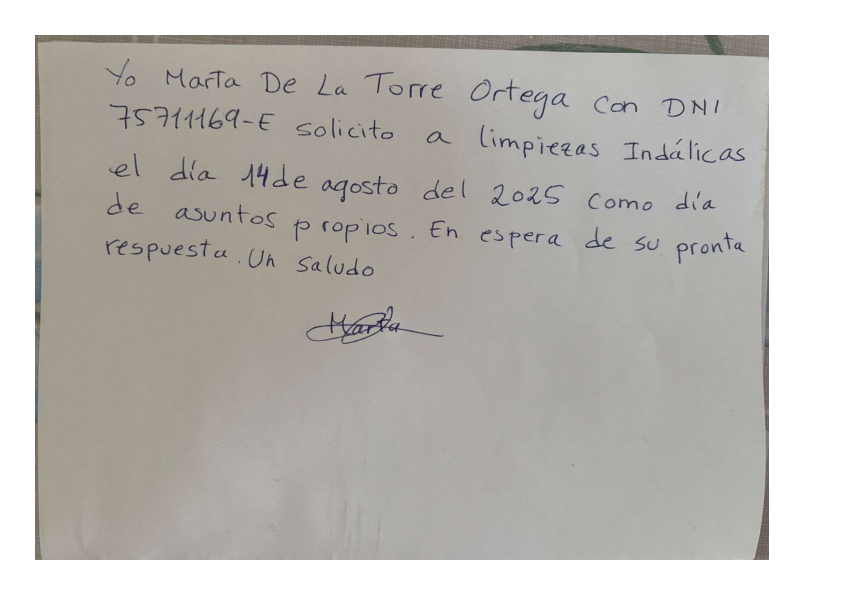 Yo Marta De La Torre Ortega con DNI
75711169-E solicito a limpiezas Indálicas
el día 14 de agosto del 2025 como día
de asuntos propios. En espera de su pronta
respuesta. Un saludo
Marta